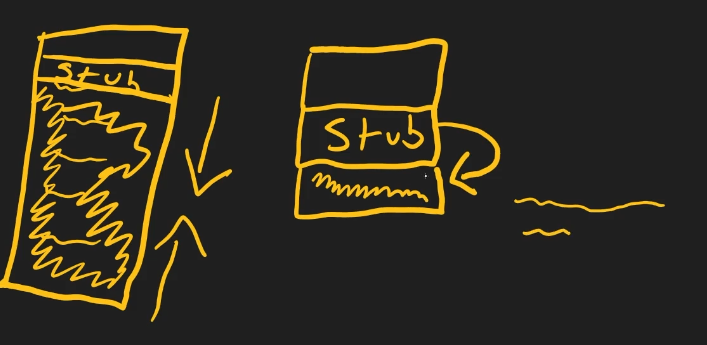 Stub
Stub